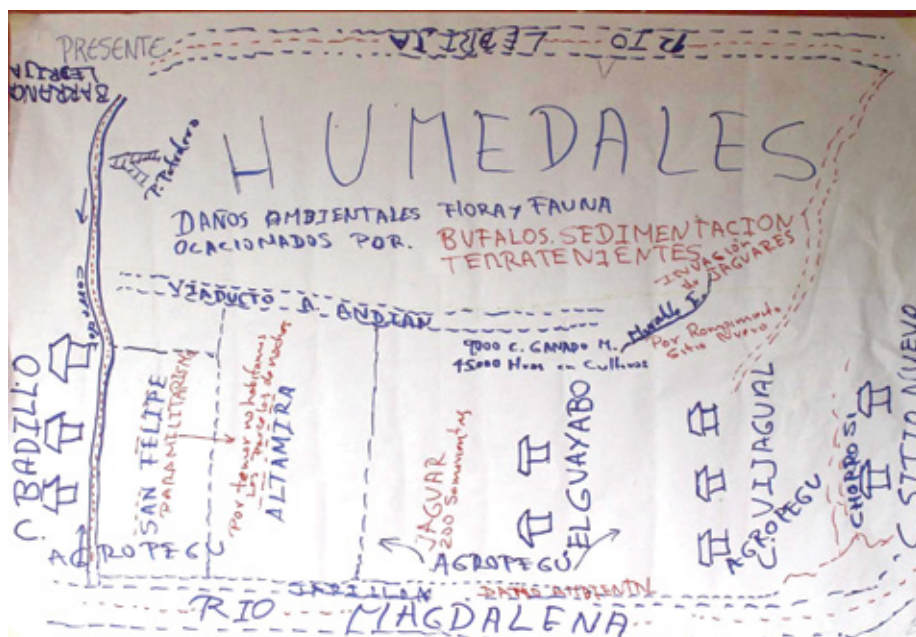 PRESENTE
RIO LEBRIJA
BARRANCA
LEBRIJA
P. Potrero
HUMEDALES
DAÑOS AMBIENTALES FLORA Y FAUNA
OCACIONADOS POR. BUFALOS. SEDIMENTACION
TERRATENIENTES
INVASIÓN
de JAGUARES
Muralla I.
Por Rompimiento
Sitio Nuevo
VIADUCTO A. ANDIAN
9000 C. GANADO M.
45000 Hras en Cultivos
C. BADILLO
SAN FELIPE
PARAMILITARISM
Por temor no habitamos
las parcelas de noches
ALTAMIRA
JAGUAR
200 Semovientes
EL GUAYABO
C. VIJAGUAL
CHORRO SI
C. SITIO NUEVO
AGROPEGU
AGROPEGU
AGROPEGU
JARILLON
DAÑO AMBIENTN
RIO MAGDALENA